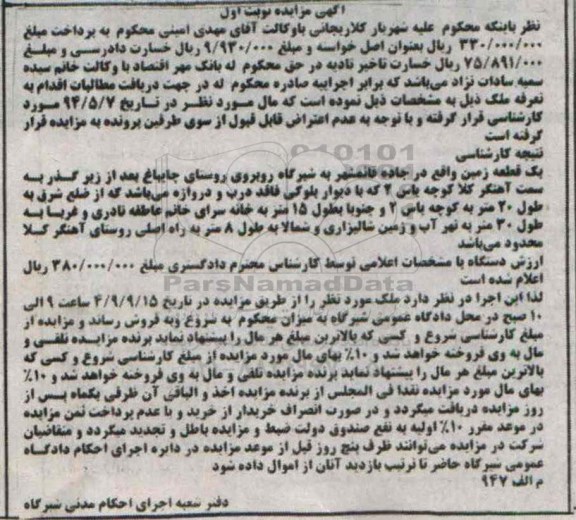 آگهی مزایده نوبت اول
نظر باینکه محکوم علیه شهریار کلاریجانی باوکالت آقای مهدی امینی محکوم به پرداخت مبلغ
۳۳۰/۰۰۰/۰۰۰ ریال بعنوان اصل خواسته و مبلغ ۹/۹۳۰/۰۰۰ ریال خسارت دادرسی و مبلغ
۷۵/۸۹۱/۰۰۰ ریال خسارت تاخیر تادیه در حق محکوم له بانک مهر اقتصاد با وکالت خانم سیده
سمیه سادات نژاد می‌باشد که برابر اجراییه صادره محکوم له در جهت دریافت مطالبات اقدام به
تعرفه ملک ذیل به مشخصات ذیل نموده است که مال مورد نظر در تاریخ ۹۴/۵/۷ مورد
کارشناسی قرار گرفته و با توجه به عدم اعتراض قابل قبول از سوی طرفین پرونده به مزایده قرار
گرفته است
نتیجه کارشناسی
یک قطعه زمین واقع در جاده قائمشهر به شیرگاه روبروی روستای چایباغ بعد از زیر گذر به
سمت آهنگر کلا کوچه یاس ۲ که با دیوار بلوکی فاقد درب و دروازه می‌باشد که از ضلع شرق به
طول ۲۰ متر به کوچه یاس ۲ و جنوبا بطول ۱۵ متر به خانه سرای خانم عاطفه نادری و غربا به
طول ۳۰ متر به نهر آب و زمین شالیزاری و شمالا به طول ۸ متر به راه اصلی روستای آهنگر کلا
محدود می‌باشد
ارزش دستگاه با مشخصات اعلامی توسط کارشناس محترم دادگستری مبلغ ۳۸۰/۰۰۰/۰۰۰ ریال
اعلام شده است
ParsNamadData
لذا این اجرا در نظر دارد ملک مورد نظر را از طریق مزایده در تاریخ ۴/۹/۹/۱۵ ساعت ۹ الی
۱۰ صبح در محل دادگاه عمومی شیرگاه به میزان محکوم به شروع وبه فروش رساند و مزایده از
مبلغ کارشناسی شروع و کسی که بالاترین مبلغ هر مال را پیشنهاد نماید برنده مزایده تلقی و
مال به وی فروخته خواهد شد و ۱۰٪ بهای مال مورد مزایده از مبلغ کارشناسی شروع و کسی که
بالاترین مبلغ هر مال را پیشنهاد نماید برنده مزایده تلقی و مال به وی فروخته خواهد شد و ۱۰٪
بهای مال مورد مزایده نقدا فی المجلس از برنده مزایده اخذ و الباقی آن ظرفی یکماه پس از
روز مزایده دریافت میگردد و در صورت انصراف خریدار از خرید و یا عدم پرداخت ثمن مزایده
در موعد مقرر ۱۰٪ اولیه به نفع صندوق دولت ضبط و مزایده باطل و تجدید میگردد و متقاضیان
شرکت در مزایده می‌توانند ظرف پنج روز قبل از موعد مزایده در دایره اجرای احکام دادگاه
عمومی شیرگاه حاضر تا ترتیب بازدید آنان از اموال داده شود
م الف ۹۴۷
دفتر شعبه اجرای احکام مدنی شیرگاه